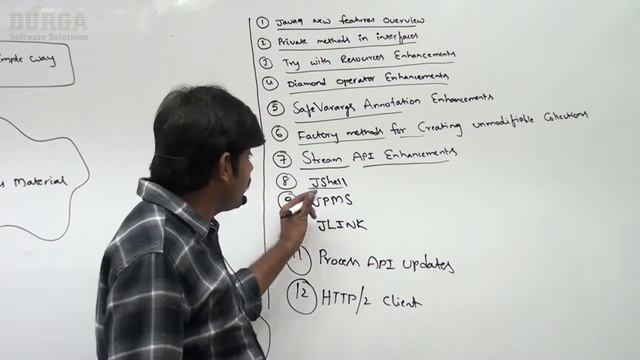 DURGA
Software Solutions
Simple way
Material
1 Java9 new features overview
2 Private methods in interfaces
3 Try with Resources Enhancements
4 Diamond operator Enhancements
5 SafeVarargs Annotation Enhancements
6 Factory methods for Creating unmodifiable Collections
7 Stream API Enhancements
8 JShell
9 JPMS
JLINK
11 Process API updates
12 HTTP/2 Client